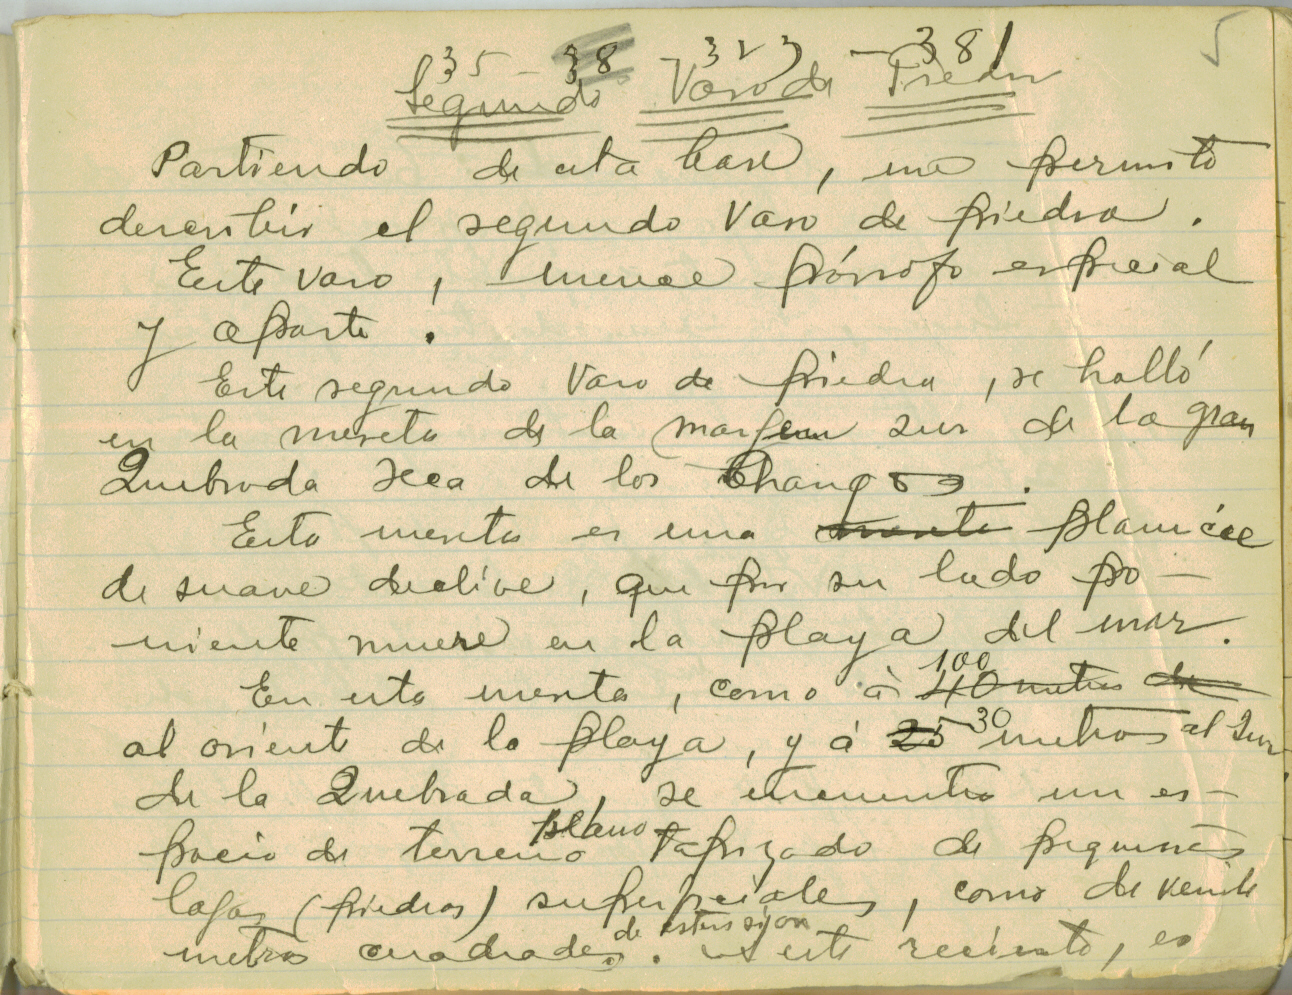 5
35 - 38 - 323 - 381
Segundo Vaso de Piedra
Partiendo de esta base, me permito
describir el segundo Vaso de piedra.
Este vaso, merece párrafo especial
y aparte.
Este segundo Vaso de piedra, se halló
en la meseta de la margen sur de la gran
Quebrada seca de los Changos.
Esta meseta es una meseta planicie
de suave declive, que por su lado po-
niente muere en la playa del mar.
En esta meseta, como á 40 metros de 100
al oriente de la playa, y á 25 30 metros al Sur
de la Quebrada, se encuentra un es-
pacio de terreno plano tapizado de pequeñas
lajas (piedras) superficiales, como de veinte
metros cuadrados de estensión. este recinto, es